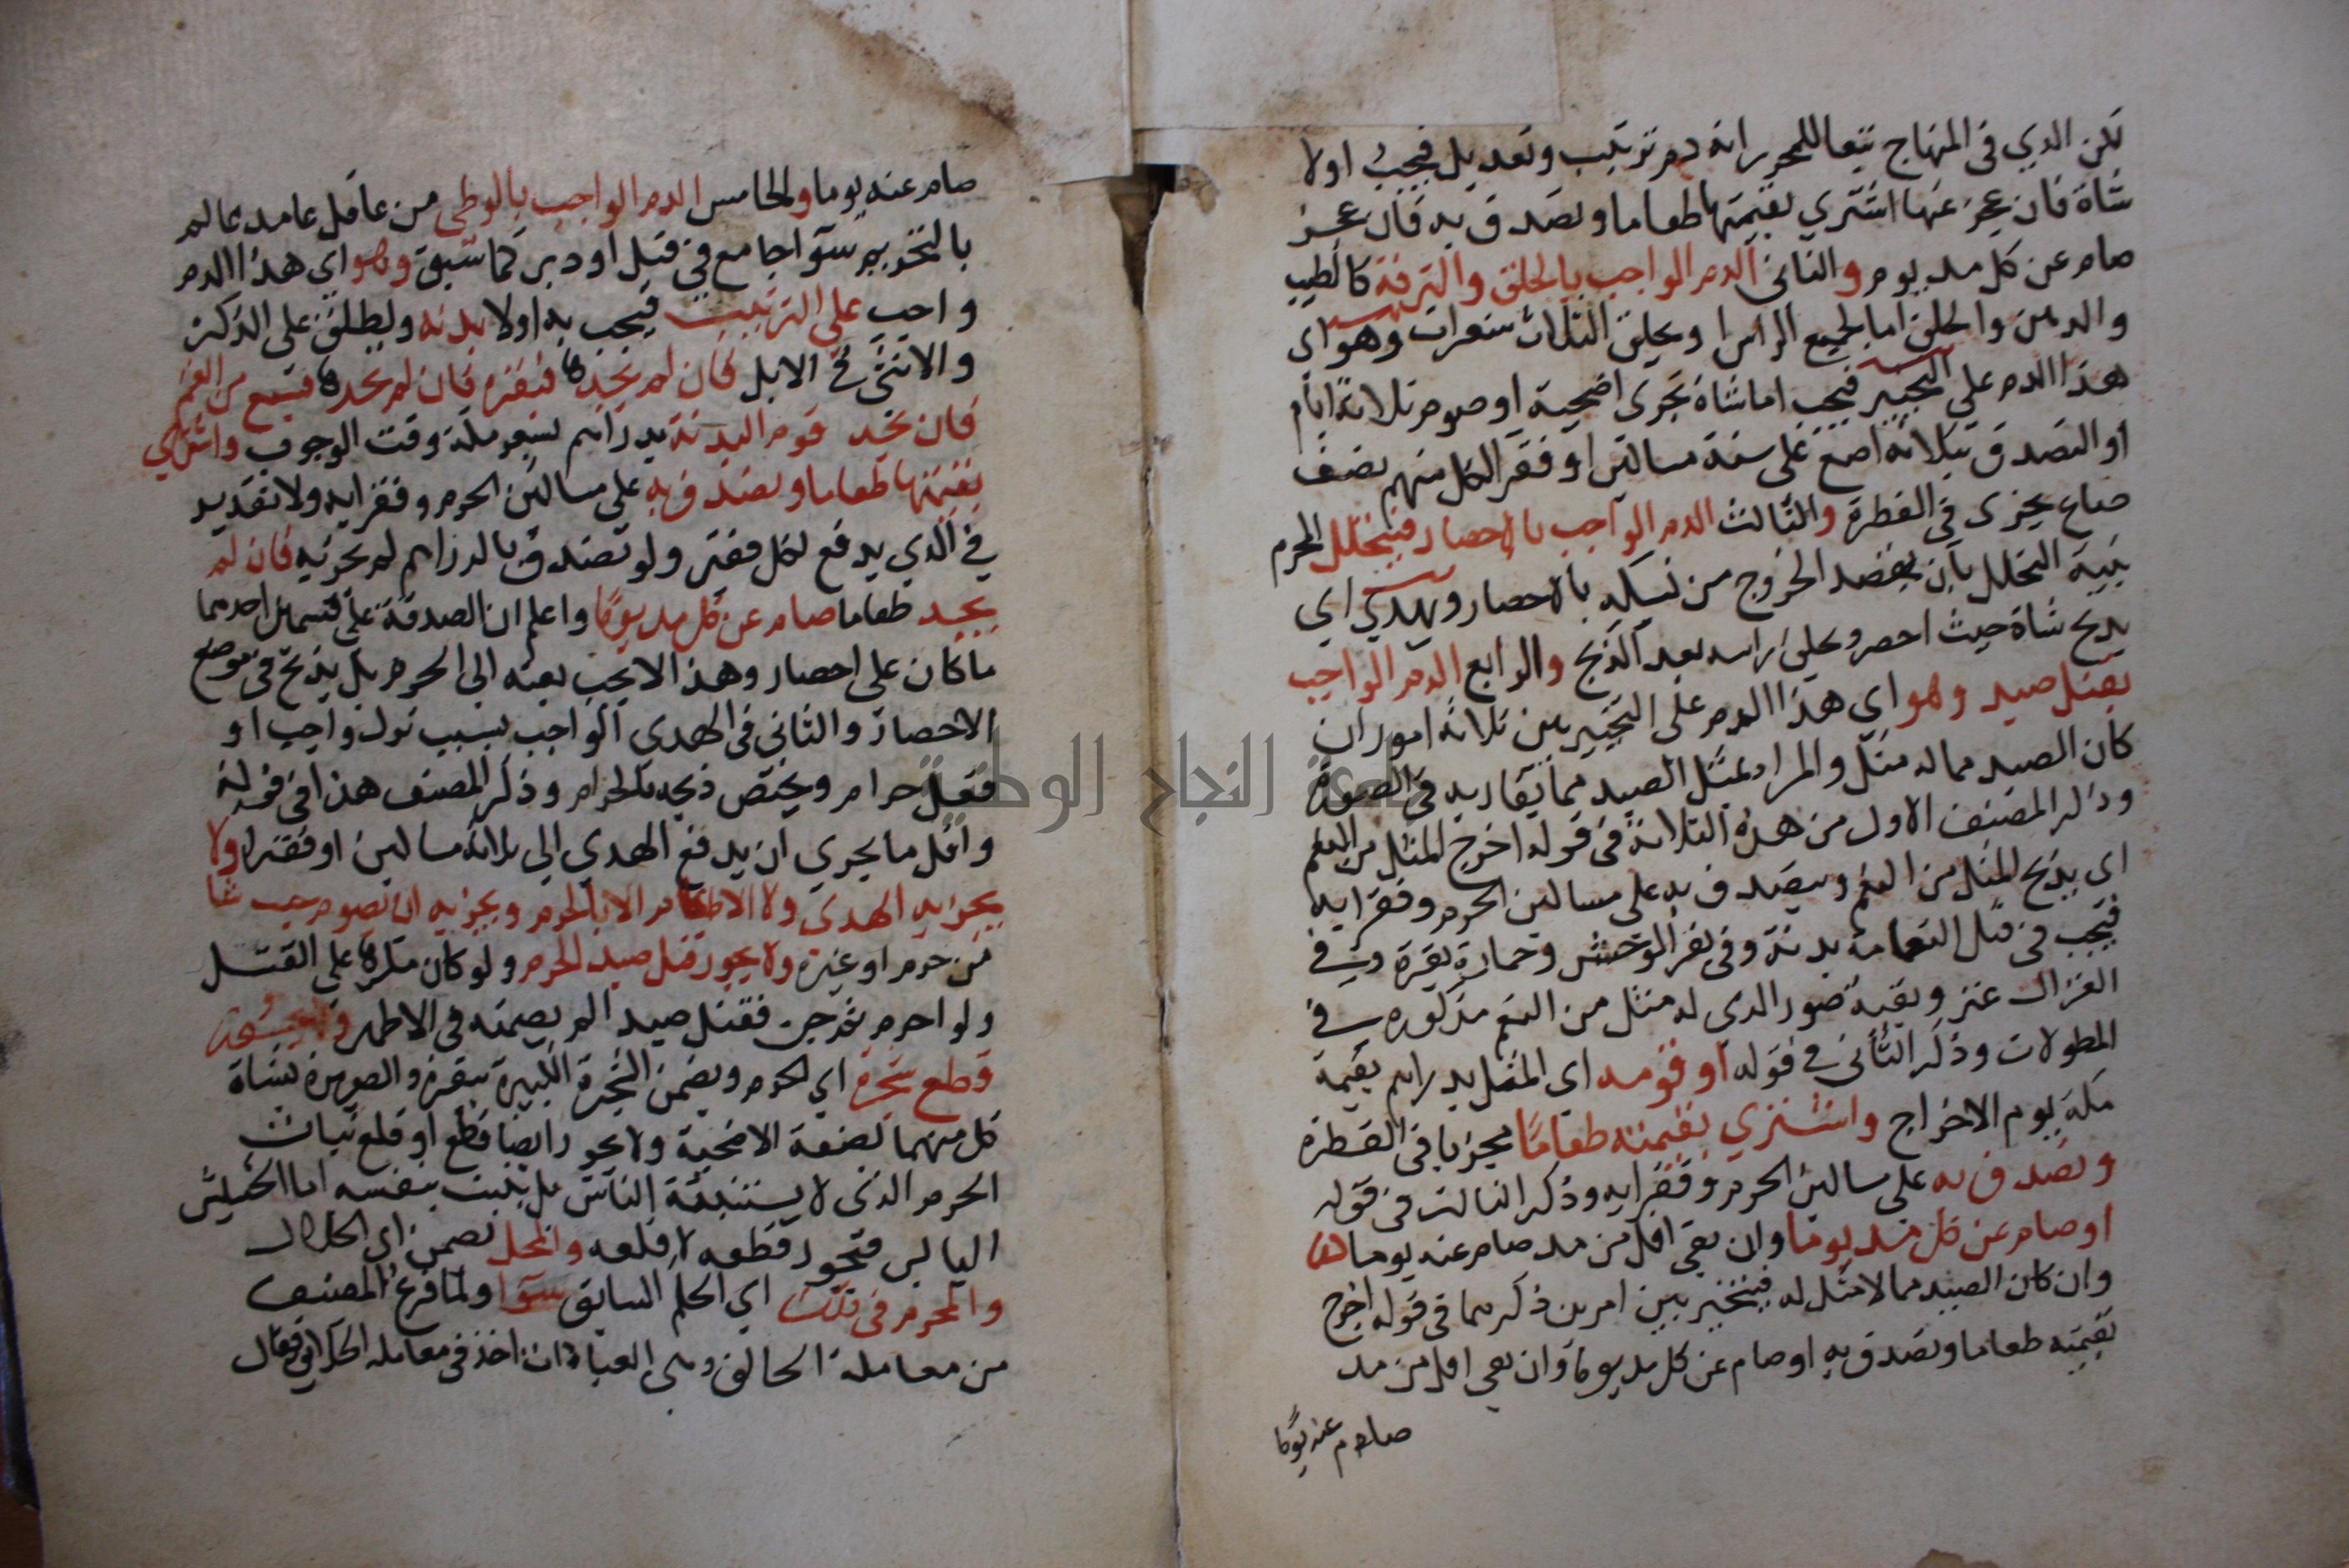 لكن الذي في المنهاج تبعا للمحرر انه دم ترتيب وتعديل فيجب اولا
شاة فان عجز عنها اشترى بقيمتها طعاما وتصدق به فان عجز
صام عن كل مد يوم والثاني الدم الواجب بالحلق والترفة كالطيب
والدهن والحلق اما لجميع الراس او بحلق الثلاث شعرات وهو اى
هذا الدم على التخيير فيجب اما شاة تجزى اضحية او صوم ثلاثة ايام
او التصدق بثلاثة اصع على ستة مساكين او فقرا لكل منهم نصف
صاع يجزى في الفطرة والثالث الدم الواجب بالاحصار فيتحلل المحرم
بنية التحلل بان يقصد الخروج من نسكه بالاحصار ويهدي اي
يذبح شاة حيث احصر ويحلق راسه بعد الذبح والرابع الدم الواجب
بقتل صيد وهو اي هذا الدم على التخيير بين ثلاثة امور ان
كان الصيد مما له مثل والمراد بمثل الصيد مما يقاربه في الصورة
وذكر المصنف الاول من هذه الثلاثة في قوله اخرج المثل من النعم
اى يذبح المثل من النعم ويتصدق به على مساكين الحرم وفقرايه
فيجب في قتل النعامة بدنة وفي بقر الوحش وحماره بقرة وفي
الغزال عنز وبقية صور الذي له مثل من النعم مذكورة في
المطولات وذكر الثاني في قوله او قومه اى المثل بدراهم بقيمة
مكة يوم الاخراج واشترى بقيمته طعاما مجزيا في الفطرة
وتصدق به على مساكين الحرم وفقرايه وذكر الثالث في قوله
او صام عن كل مد يوما وان بقي اقل من مد صام عنه يوما
وان كان الصيد مما لا مثل له فيتخير بين امرين ذكرهما في قوله اخرج
بقيمته طعاما وتصدق به او صام عن كل مد يوما وان بقي اقل من مد
صام عنه يوما
صام عنه يوما والخامس الدم الواجب بالوطى من عاقل عامد عالم
بالتحريم سوا جامع في قبل او دبر كما سبق وهو اي هذا الدم
واجب على الترتيب فيجب به اولا بدنة ويطلق على الذكر
والانثى من الابل فان لم يجدها فبقرة فان لم يجدها فسبع من الغنم
فان لم يجد قوم البدنة بدراهم بسعر مكة وقت الوجوب واشترى
بقيمتها طعاما وتصدق به على مساكين الحرم وفقرايه ولا تقدير
في الذي يدفع لكل فقير ولو تصدق بالدراهم لم يجزيه فان لم
يجد طعاما صام عن كل مد يوما واعلم ان الصدقة على قسمين احدهما
ما كان على احصار وهذا لا يجب بعثه الى الحرم بل يذبح في موضع
الاحصار والثاني في الهدي الواجب بسبب ترك واجب او
فعل حرام ويختص ذبحه بالحرم وذكر المصنف هذا في قوله
واقل ما يجزي ان يدفع الهدي الى ثلاثة مساكين او فقرا ولا
يجزيه الهدى ولا الاطعام الا بالحرم ويجزيه ان يصوم حيث شا
من حرم او غيره ولا يجوز قتل صيد الحرم ولو كان مكرها على القتل
ولو احرم ثم جن فقتل صيدا لم يضمنه في الاظهر
قطع شجره اي الحرم ويضمن الشجرة الكبيرة ببقرة والصغيرة بشاة
كل منهما بصفة الاضحية ولا يجوز ايضا قطع او قلع نبات
الحرم الذي لا يستنبته الناس بل ينبت بنفسه اما الحشيش
اليابس فيجوز قطعه لا قلعه والمحل بضمن اي الحلال
والمحرم في ذلك اي الحكم السابق سوا ولما فرغ المصنف
من معاملة الخالق وهي العبادات اخذ في معاملة الخلايق فقال
جامعة النجاح الوطنية